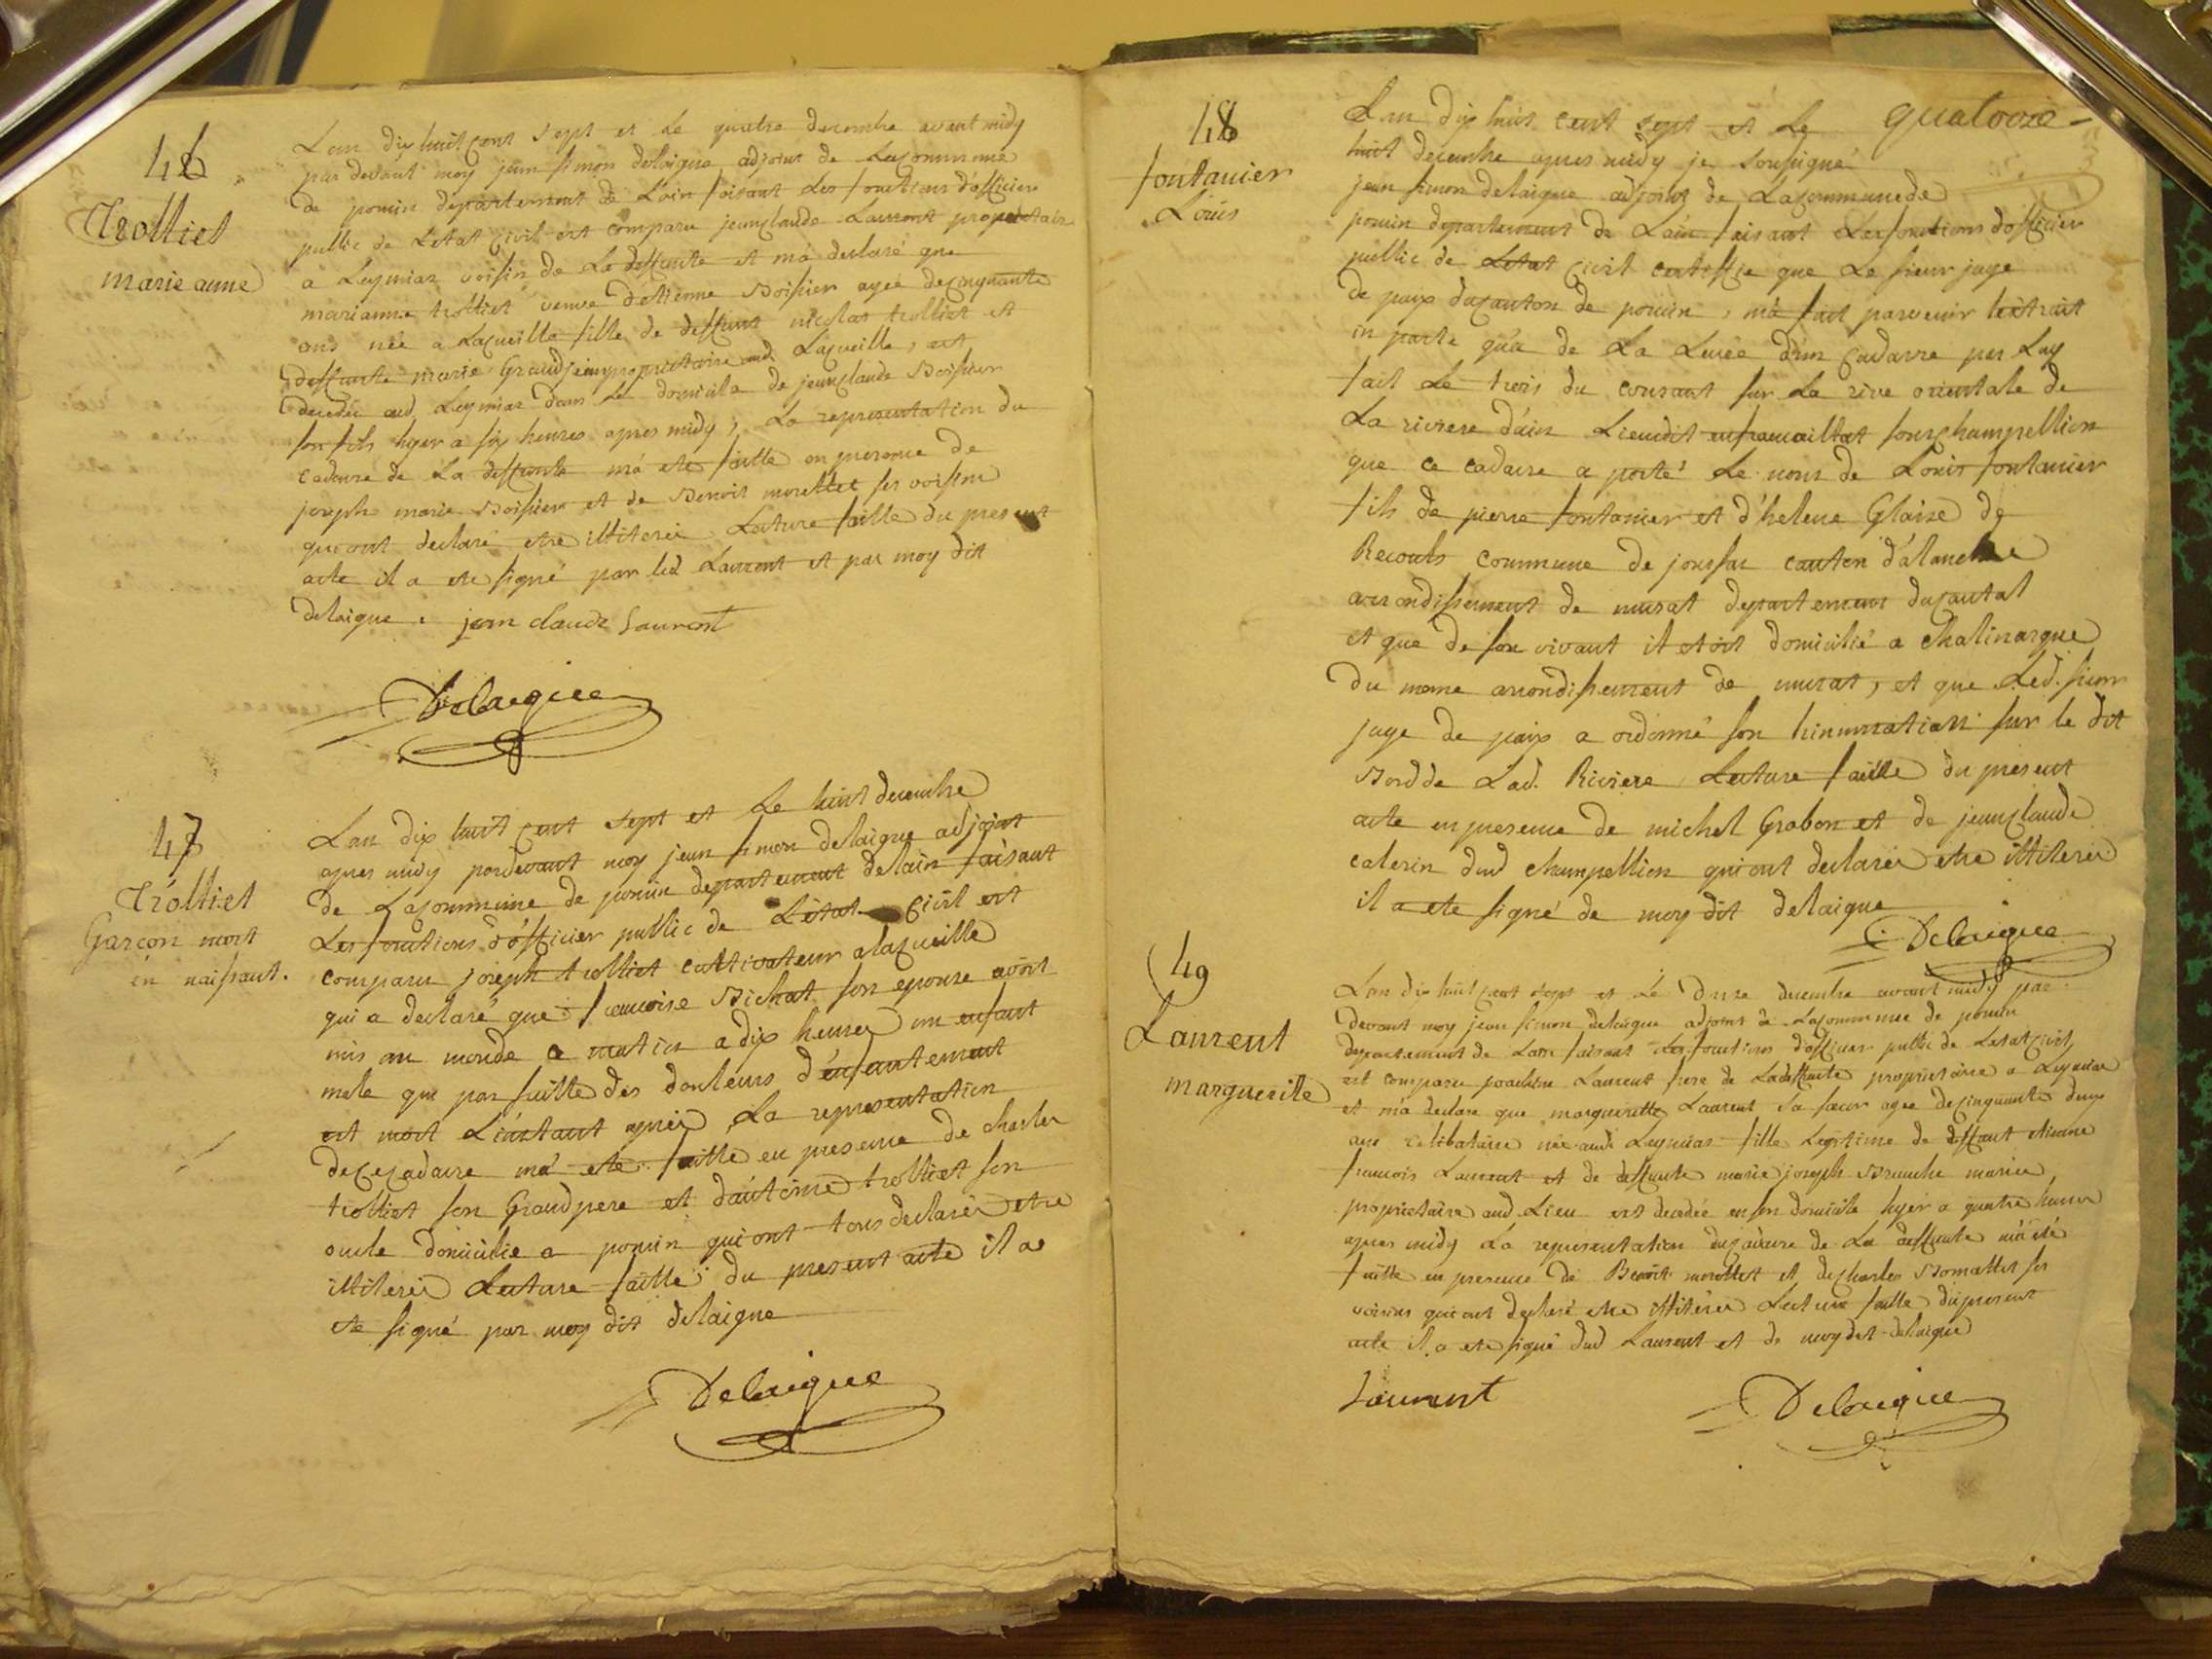 46
Trolliet
marie anne
Lan dix huit cent sept et Le quatre decembre avant midy
par devant moy jean simon delaigue adjoint de Lacommune
de poncin departement de Lain faisant Les fonctions d'officier
public de Letat civil est comparu jeanclaude Laurent proprietaire
a Leymiaz voisin de La deffunte et má declaré que
marianne trolliet veuve d'etienne Boissier agée decinquante
ans née a Lacueille fille de deffunt nicolas trolliet et
deffunte marie Grandjean proprietaire aud Lacueille, est
decedée aud Leymiaz dans Le domicile de jeanclaude Boissier
son fils hyer a six heures apres midy, La representation du
cadavre de La deffunte má eté faitte en presence de
joseph marie Boissier et de Benoit morellet ses voisins
qui ont declaré etre illiterés Lecture faitte du present
acte il a eté signé par led Laurent et par moy dit
delaigue. jean claude Laurent
Delaigue
47
Trolliet
Garcon mort
en naissant.
Lan dix huit cent sept et Le huit decembre
apres midy pardevant moy jean simon delaigue adjoint
de Lacommune de poncin departement delain faisant
Les fonctions d'officier public de Létat civil est
comparu joseph trolliet cultivateur alacueille
qui a declaré que francoise Bichat son epouse avoit
mis au monde ce matin a dix heures un enfant
male qui par suitte des douleurs d'enfantement
est mort L'instant aprés La representation
dececadavre má eté faitte en presence de charles
trolliet son Grandpere et d'antoine trolliet son
oncle domicilie a poncin qui ont tous declarés etre
illiterés Lecture faitte du present acte il a
eté signé par moy dit delaigue
Delaigue
48
fontanier
Loüis
Lan dix huit cent sept et Le quatorze
huit decembre apres midy je soussigné
jean simon delaigue adjoint de Lacommune de
poncin departement de Lain faisant Les fonctions d'officier
public de Letat civil certiffie que Le sieur juge
de paix ducanton de poncin, má fait parvenir Lextrait
in parte qua de La Levée d'un cadavre par Luy
fait Le trois du courant sur La rive orientale de
La riviere d'ain Lieudit sous champellion
que ce cadavre a porté Le nom de Louis fontanier
fils de pierre fontanier et d'helene Glaize de
Recouls commune de joursac canton d'alanche
arrondissement de murat departement ducantal
et que de son vivant il etoit domicilié a chalinargue
du meme arrondissement de murat, et que Led. sieur
juge de paix a ordonné son hinumation sur le dit
Bord de Lad. Riviere Lecture faitte du present
acte en presence de michel Grabon et de jeanclaude
calerin dud champellion qui ont declarés etre illiterés
il a eté signé de moy dit delaigue
Delaigue
49
Laurent
marguerite
Lan dix huit cent sept et Le douze decembre avant midy par
devant moy jean simon delaigue adjoint de Lacommune de poncin
departement de Lain faisant Les fonctions d'officier public de Letat civil
est comparu joachim Laurent frere de La deffunte proprietaire a Leymiaz
et má declaré que margueritte Laurent sa soeur agée decinquante deux
ans celibataire née aud Leymiaz fille Legitime de deffunt etienne
francois Laurent et de deffunte marie joseph Brunche mariés
proprietaires aud Lieu est decedée en son domicile hyer a quatre heures
apres midy La representation ducadavre de La deffunte má eté
faitte en presence de Benoit morellet et decharles Bomallet ses
voisins qui ont declaré etre illiterés Lecture faitte dupresent
acte il a eté signé dud Laurent et de moy dit delaigue
Laurent
Delaigue